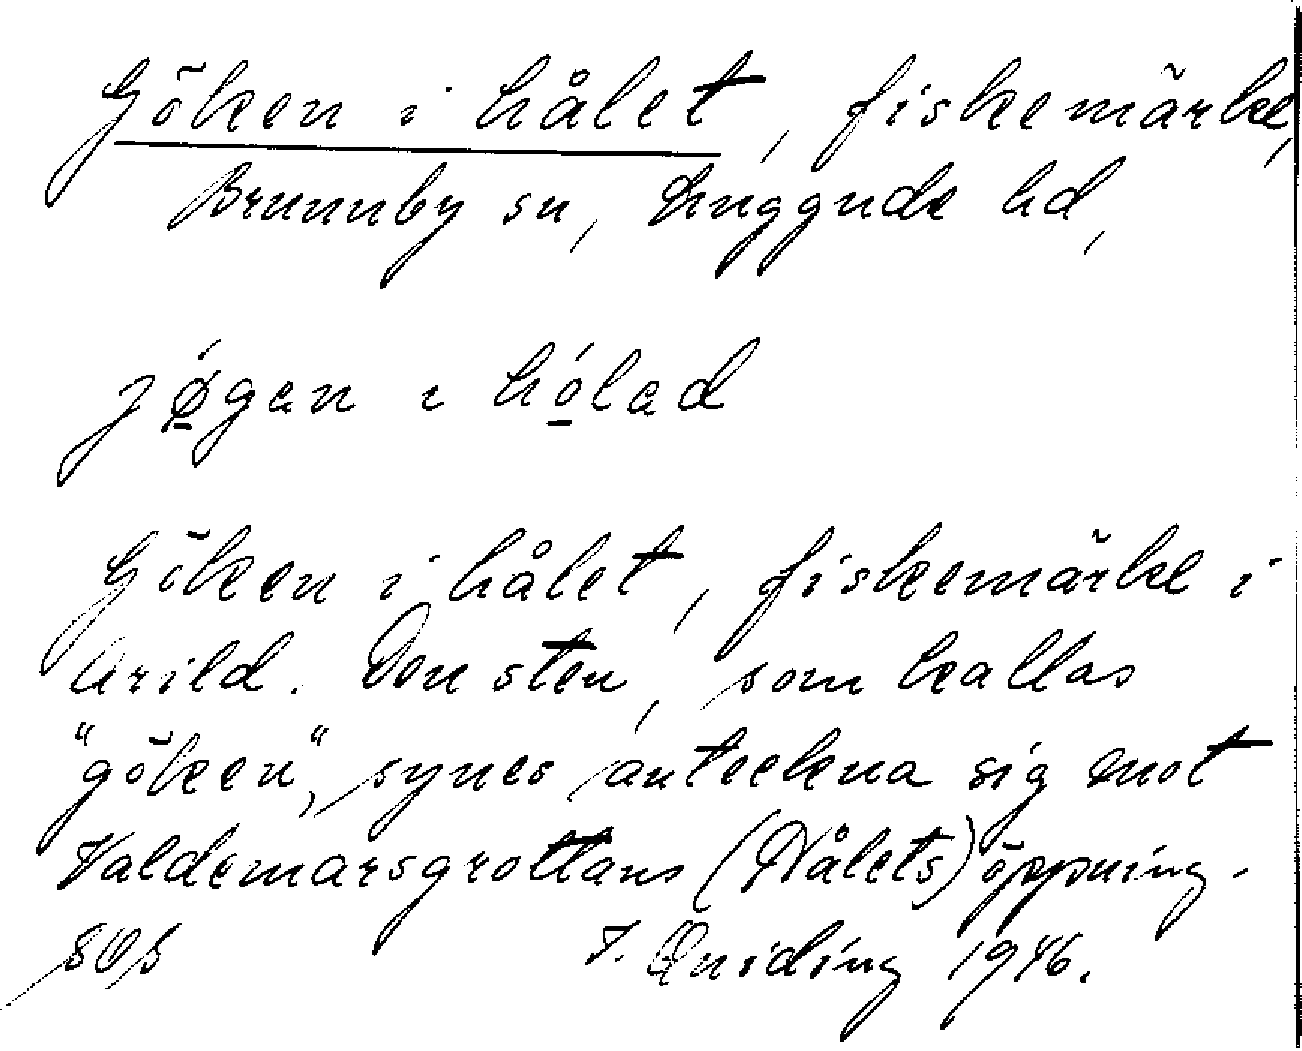 Göken i hålet, fiskemärke,
Brunnby sn, Luggude hd,
jǿgan ı hólad
Göken i hålet, fiskemärke i
Arild. Den sten, som kallas
"göken", synes anteckna sig mot
Valdemarsgrottans (Hålets) öppning.
SOS I. Qniding 1946.